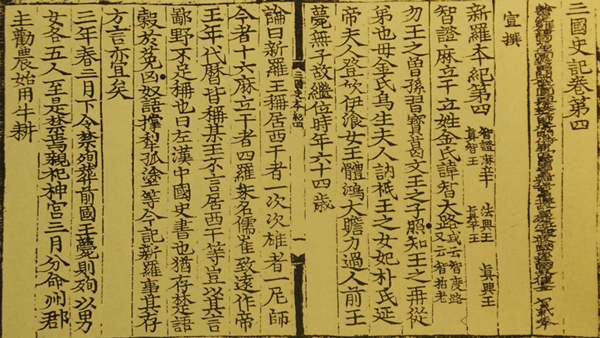 三國史記卷第四
宣撰
新羅本紀第四 智證麻立干 法興王 眞興王 眞智王 眞平王
智證麻立干立姓金氏諱智大路 或云智度路又云智哲老
勿王之曾孫習寶葛文王之子照知王之再從
弟也母金氏鳥生夫人訥祗王之女妃朴氏延
帝夫人登欣伊飡女王體鴻大膽力過人前王
薨無子故繼位時年六十四歲
三國史本紀四 一
論曰新羅王稱居西干者一次次雄者一尼師
今者十六麻立干者四羅末名儒崔致遠作帝
王年代曆皆稱某王不言居西干等豈以其言
鄙野不足稱也曰左漢中國史書也猶存楚語
穀於菟匈奴語撑犁孤塗等今記新羅事其存
方言亦宜矣
三年春三月下令禁殉葬前國王薨則殉以男
女各五人至是禁焉親祀神宮三月分命州郡
主勸農始用牛耕